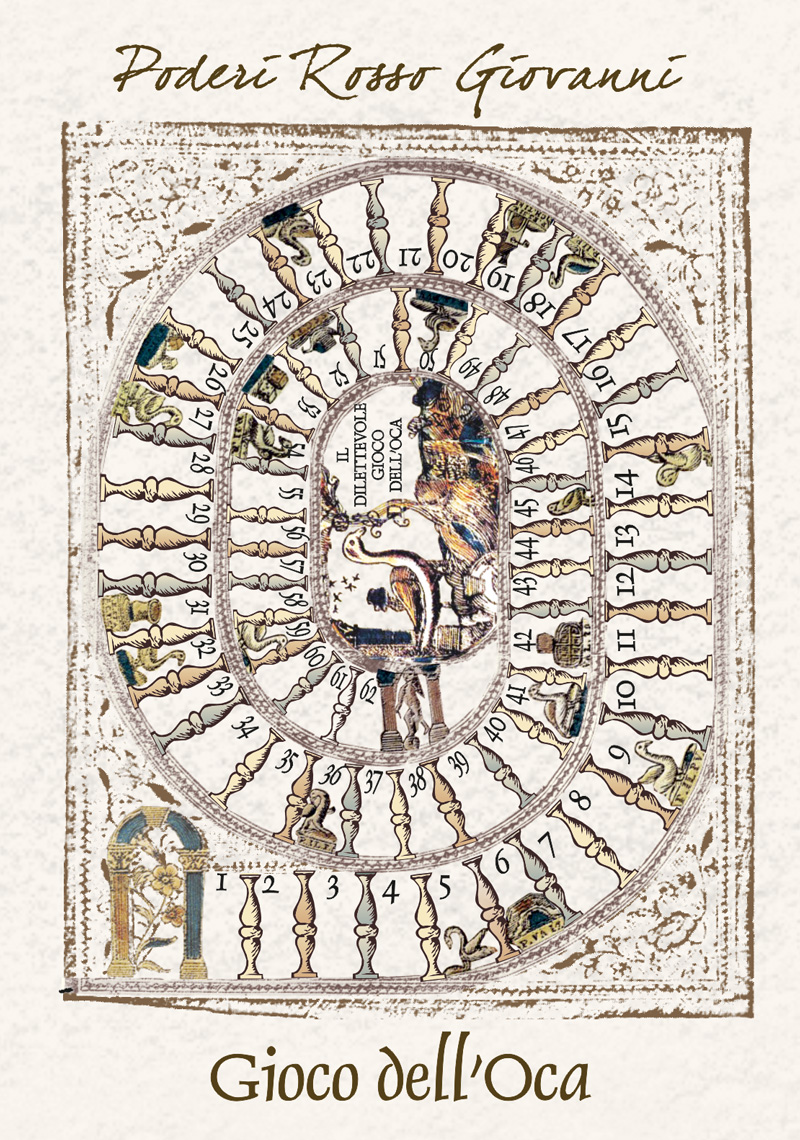 Poderi Rosso Giovanni
IL
DILETTEVOLE
GIOCO
DELL'OCA
1
2
3
4
5
6
7
8
9
10
11
12
13
14
15
16
17
18
19
20
21
22
23
24
25
26
27
28
29
30
31
32
33
34
35
36
37
38
39
40
41
42
43
44
45
46
47
48
49
50
51
52
53
54
55
56
57
58
59
60
61
62
Gioco dell'Oca